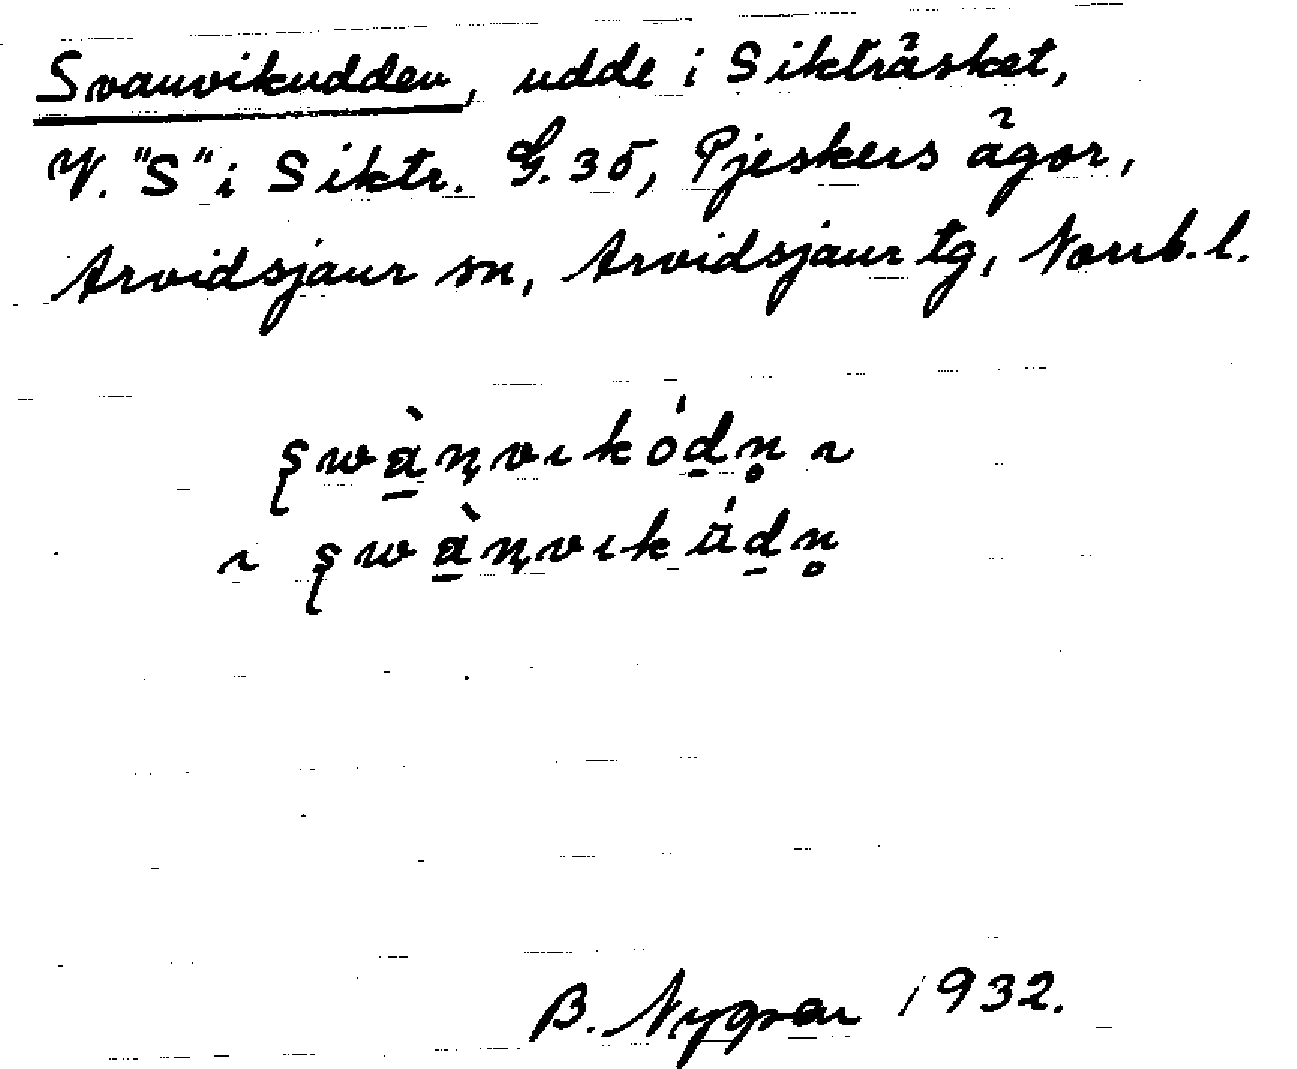 Svanvikudden, udde i Sikträsket,
V. "S" i Siktr. G. 35, Pjeskers ägor,
Arvidsjaur sn, Arvidsjaur tg, Norrb. l.
B. Nygren 1932.